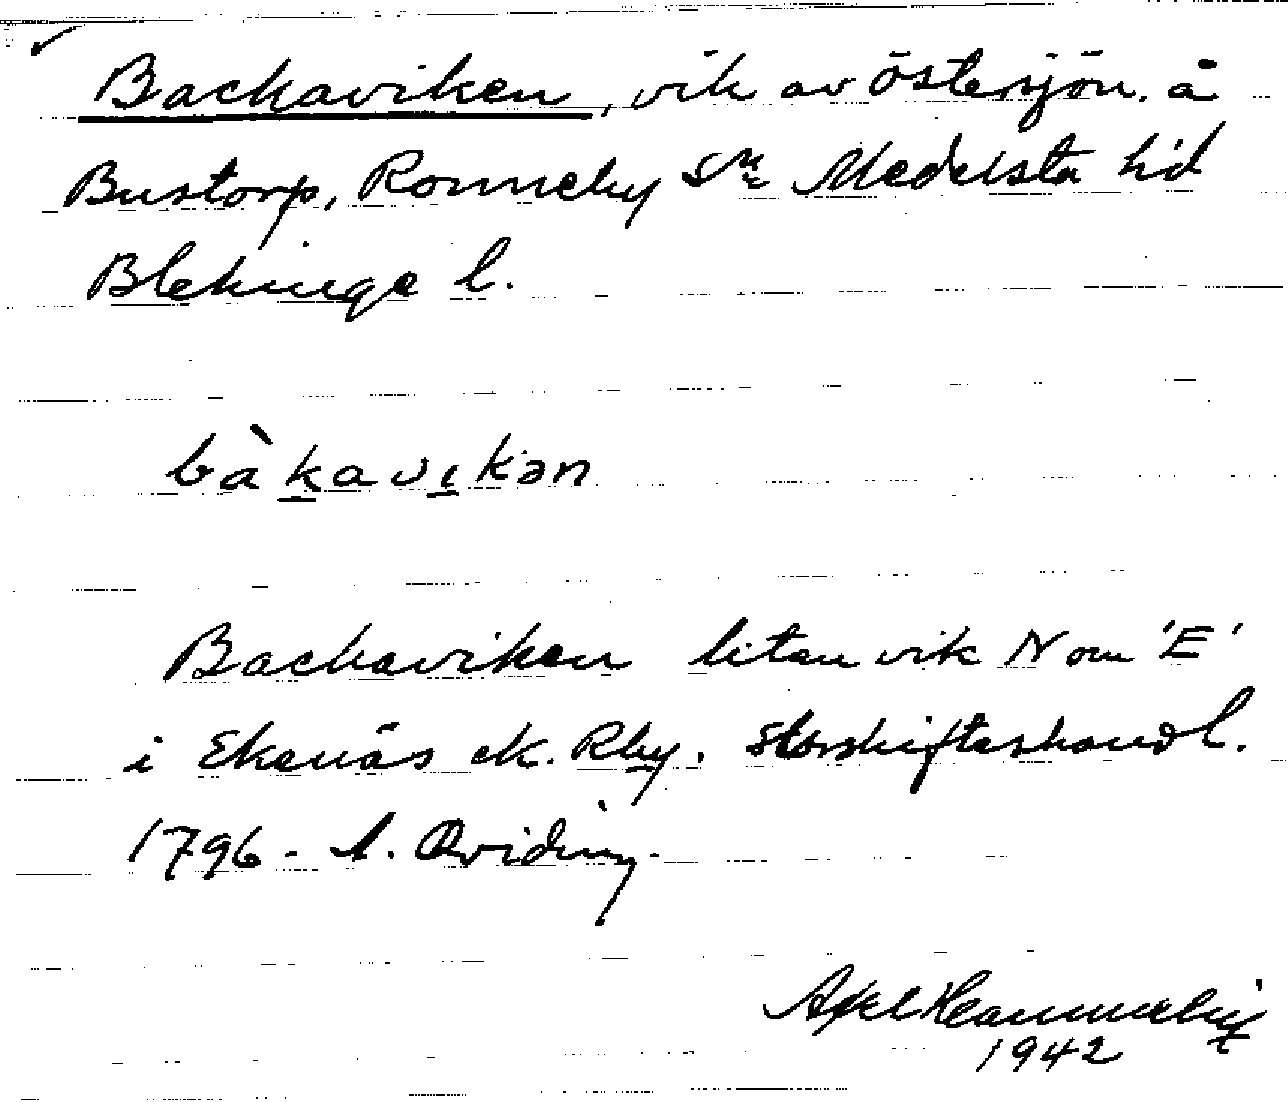 Backaviken, vik av Östersjön, å
Bustorp, Ronneby sn Medelsta hd
Blekinge l.
bàkavikən
Backaviken liten vik N om 'E'
i Ekenäs ek. Rby. Storskifteshandl.
1796 - A. Qviding
Axel
1942